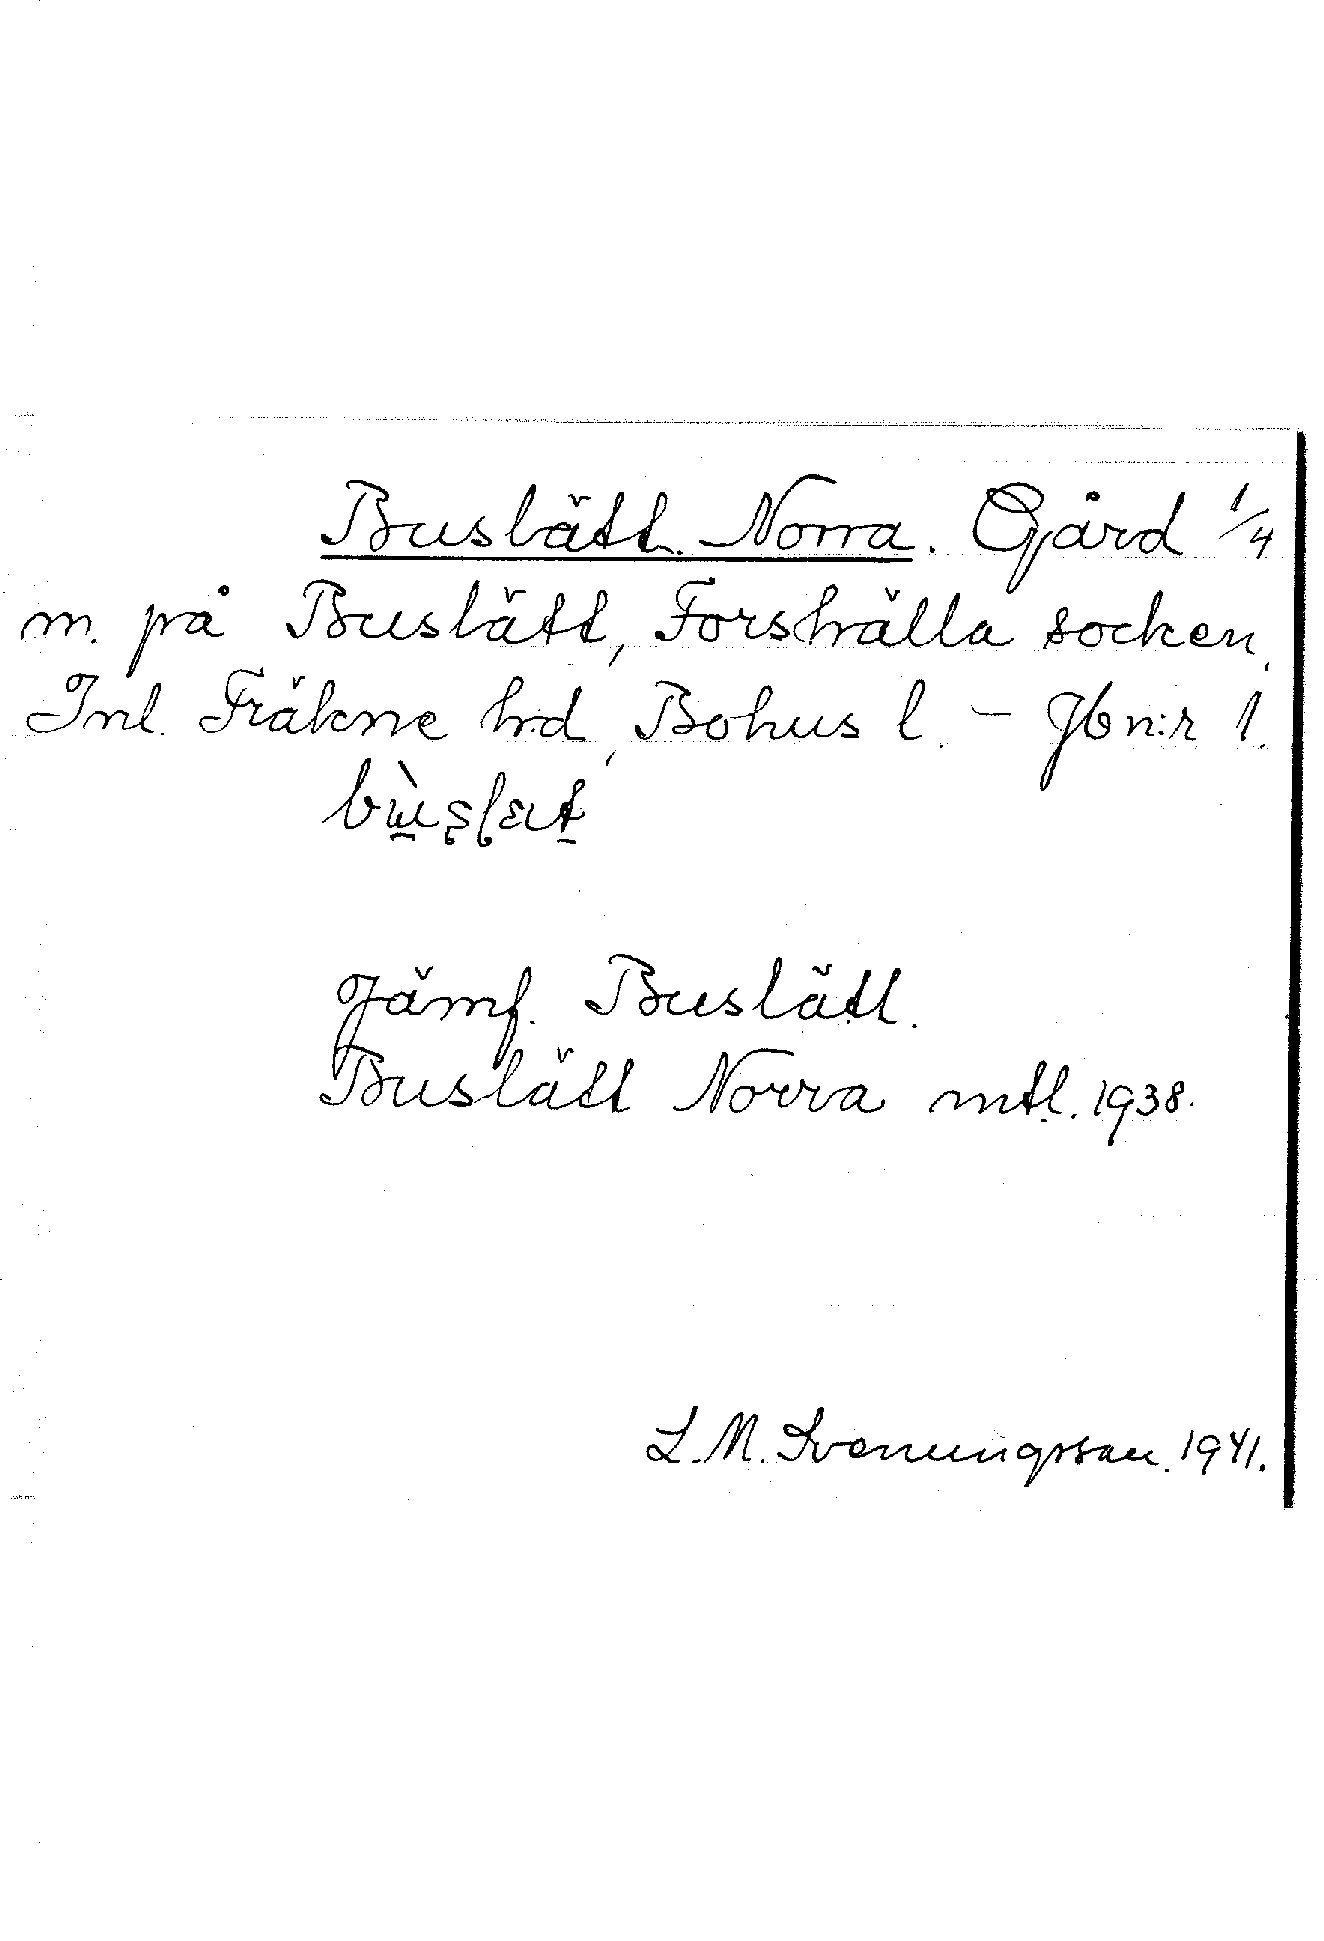 Buslätt. Norra. Gård 1/4
m. på Buslätt, Forshälla socken,
Inl. Fräkne hd, Bohus l. – Jbn:r 1.
Jämf. Buslätt.
Buslätt Norra mtl. 1938.
L. M. Svenungsson. 1941.